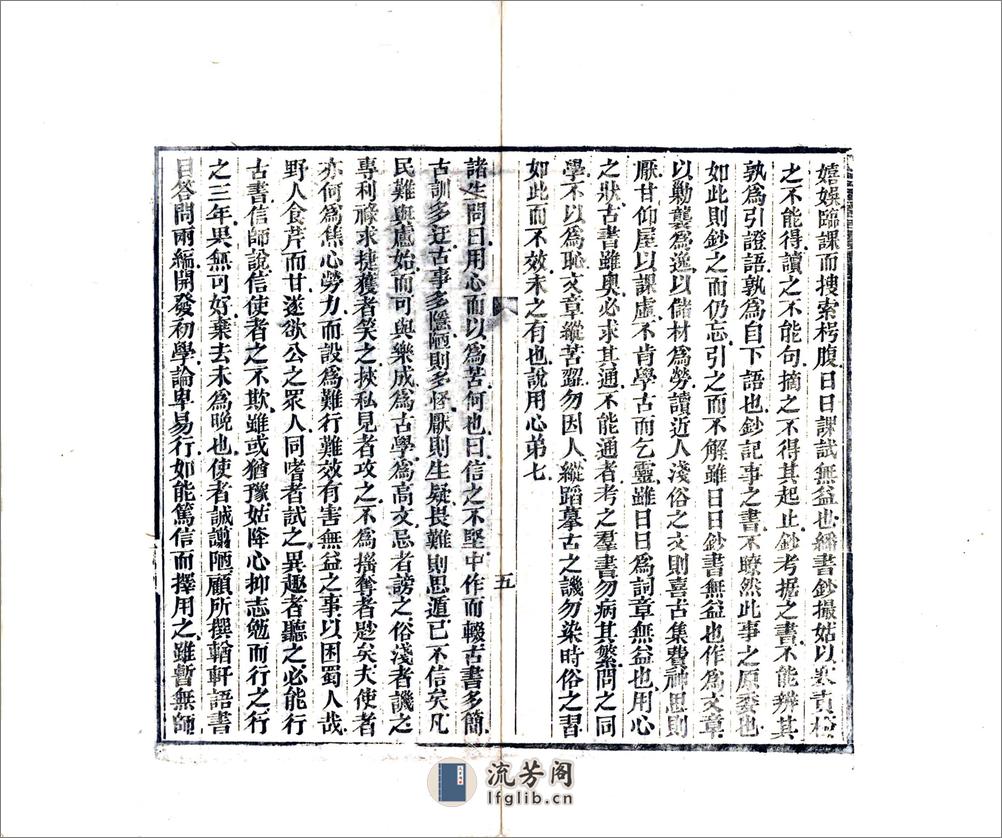 嬉娛臨課而搜索枵腹日日課試無益也繙書鈔撮姑以塞責校
之不能得讀之不能句摘之不得其起止鈔考据之書不能辨其
孰爲引證語孰爲自下語也鈔記事之書不瞭然此事之原委也
如此則鈔之而仍忘引之而不解雖日日鈔書無益也作爲文章
以勦襲爲逸以儲材爲勞讀近人淺俗之文則喜古集費神思則
厭甘仰屋以課虛不肯學古而乞靈雖日日爲詞章無益也用心
之狀古書雖奧必求其通不能通者考之羣書勿病其繁問之同
學不以爲恥文章縱苦澀勿因人縱蹈摹古之譏勿染時俗之習
如此而不效未之有也說用心弟七
五
諸生問曰用心而以爲苦何也曰信之不堅中作而輟古書多簡
古訓多迂古事多隱陋則多怪厭則生疑畏難則思遁已不信矣凡
民難與慮始而可與樂成爲古學爲高文忌者謗之俗淺者譏之
專利祿求捷獲者笑之挾私見者攻之不爲搖奪者尠矣夫使者
亦何爲焦心勞力而設爲難行難效有害無益之事以困蜀人哉
野人食芹而甘遂欲公之眾人同嗜者試之異趣者聽之必能行
古書信師說信使者之不欺雖或猶豫姑降心抑志勉而行之行
之三年果無可好棄去未爲晚也使者誠譾陋顧所撰輶軒語書
目答問兩編開發初學論卑易行如能篤信而擇用之雖暫無師
流芳阁
lfglib.cn